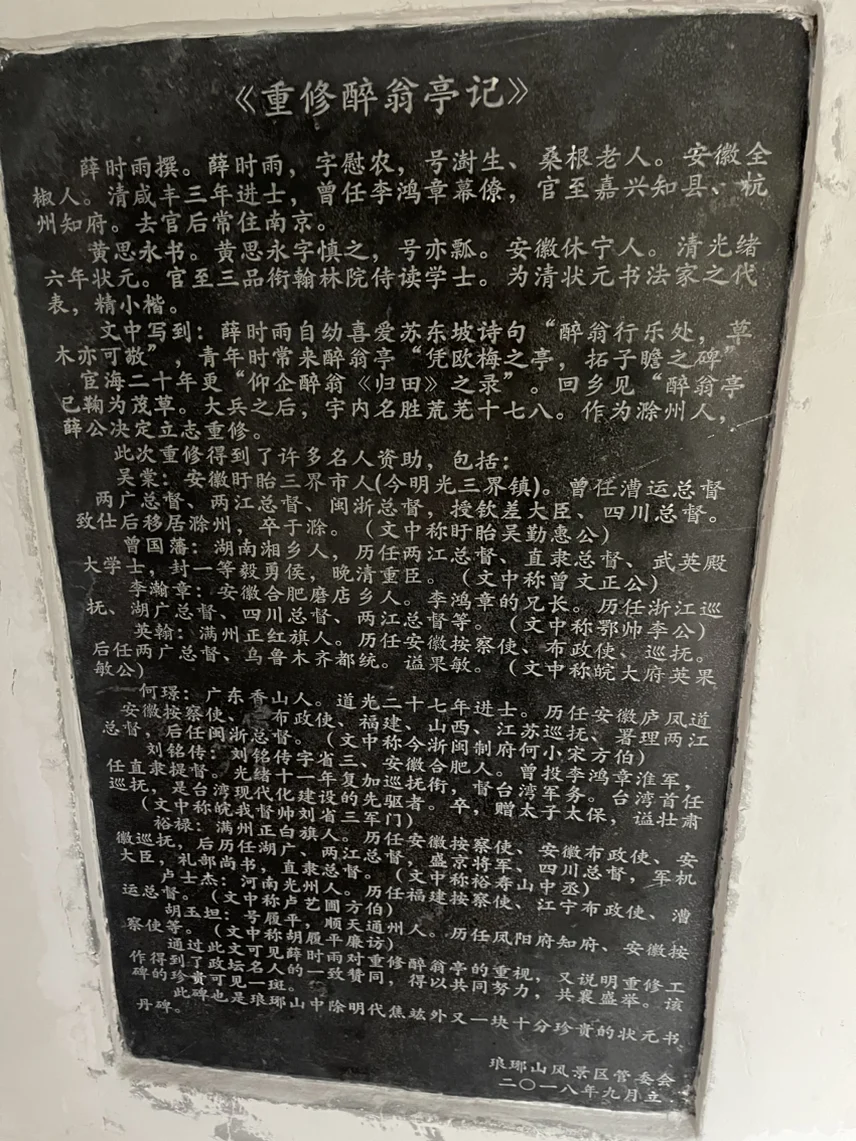 《重修醉翁亭记》
薛时雨撰。薛时雨，字慰农，号澍生、桑根老人。安徽全
椒人。清咸丰三年进士，曾任李鸿章幕僚，官至嘉兴知县、杭
州知府。去官后常住南京。
黄思永书。黄思永字慎之，号亦瓢。安徽休宁人。清光绪
六年状元。官至三品衔翰林院侍读学士。为清状元书法家之代
表，精小楷。
文中写到：薛时雨自幼喜爱苏东坡诗句“醉翁行乐处，草
木亦可敬”，青年时常来醉翁亭“凭欧梅之亭，拓子瞻之碑”
宦海二十年更“仰企醉翁《归田》之录”。回乡见“醉翁亭
已鞠为茂草。大兵之后，宇内名胜荒芜十七八。作为滁州人，
薛公决定立志重修。
此次重修得到了许多名人资助，包括：
吴棠：安徽盱眙三界市人(今明光三界镇)。曾任漕运总督
两广总督、两江总督、闽浙总督，授钦差大臣、四川总督。
致仕后移居滁州，卒于滁。（文中称盱眙吴勤惠公）
曾国藩：湖南湘乡人，历任两江总督、直隶总督、武英殿
大学士，封一等毅勇侯，晚清重臣。（文中称曾文正公）
李瀚章：安徽合肥磨店乡人。李鸿章的兄长。历任浙江巡
抚、湖广总督、四川总督、两江总督等。（文中称鄂帅李公）
英翰：满州正红旗人。历任安徽按察使、布政使、巡抚。
后任两广总督、乌鲁木齐都统。谥果敏。（文中称皖大府英果
敏公）
何璟：广东香山人。道光二十七年进士。历任安徽庐凤道
安徽按察使、布政使、福建、山西、江苏巡抚、署理两江
总督，后任闽浙总督。（文中称今浙闽制府何小宋方伯）
刘铭传：刘铭传字省三、安徽合肥人。曾投李鸿章淮军，
任直隶提督。光绪十一年复加巡抚衔，督台湾军务。台湾首任
巡抚，是台湾现代化建设的先驱者。卒，赠太子太保，谥壮肃
（文中称皖我督帅刘省三军门）
裕禄：满州正白旗人。历任安徽按察使、安徽布政使、安
徽巡抚，后历任湖广、两江总督，盛京将军、四川总督，军机
大臣，礼部尚书，直隶总督。（文中称裕寿山中丞）
卢士杰：河南光州人。历任福建按察使、江宁布政使、漕
运总督。（文中称卢艺圃方伯）
胡玉坦：号履平，顺天通州人。历任凤阳府知府、安徽按
察使等。（文中称胡履平廉访）
通过此文可见薛时雨对重修醉翁亭的重视，又说明重修工
作得到了政坛名人的一致赞同，得以共同努力，共襄盛举。该
碑的珍贵可见一斑。
此碑也是琅琊山中除明代焦竑外又一块十分珍贵的状元书
丹碑。
琅琊山风景区管委会
二〇一八年九月立